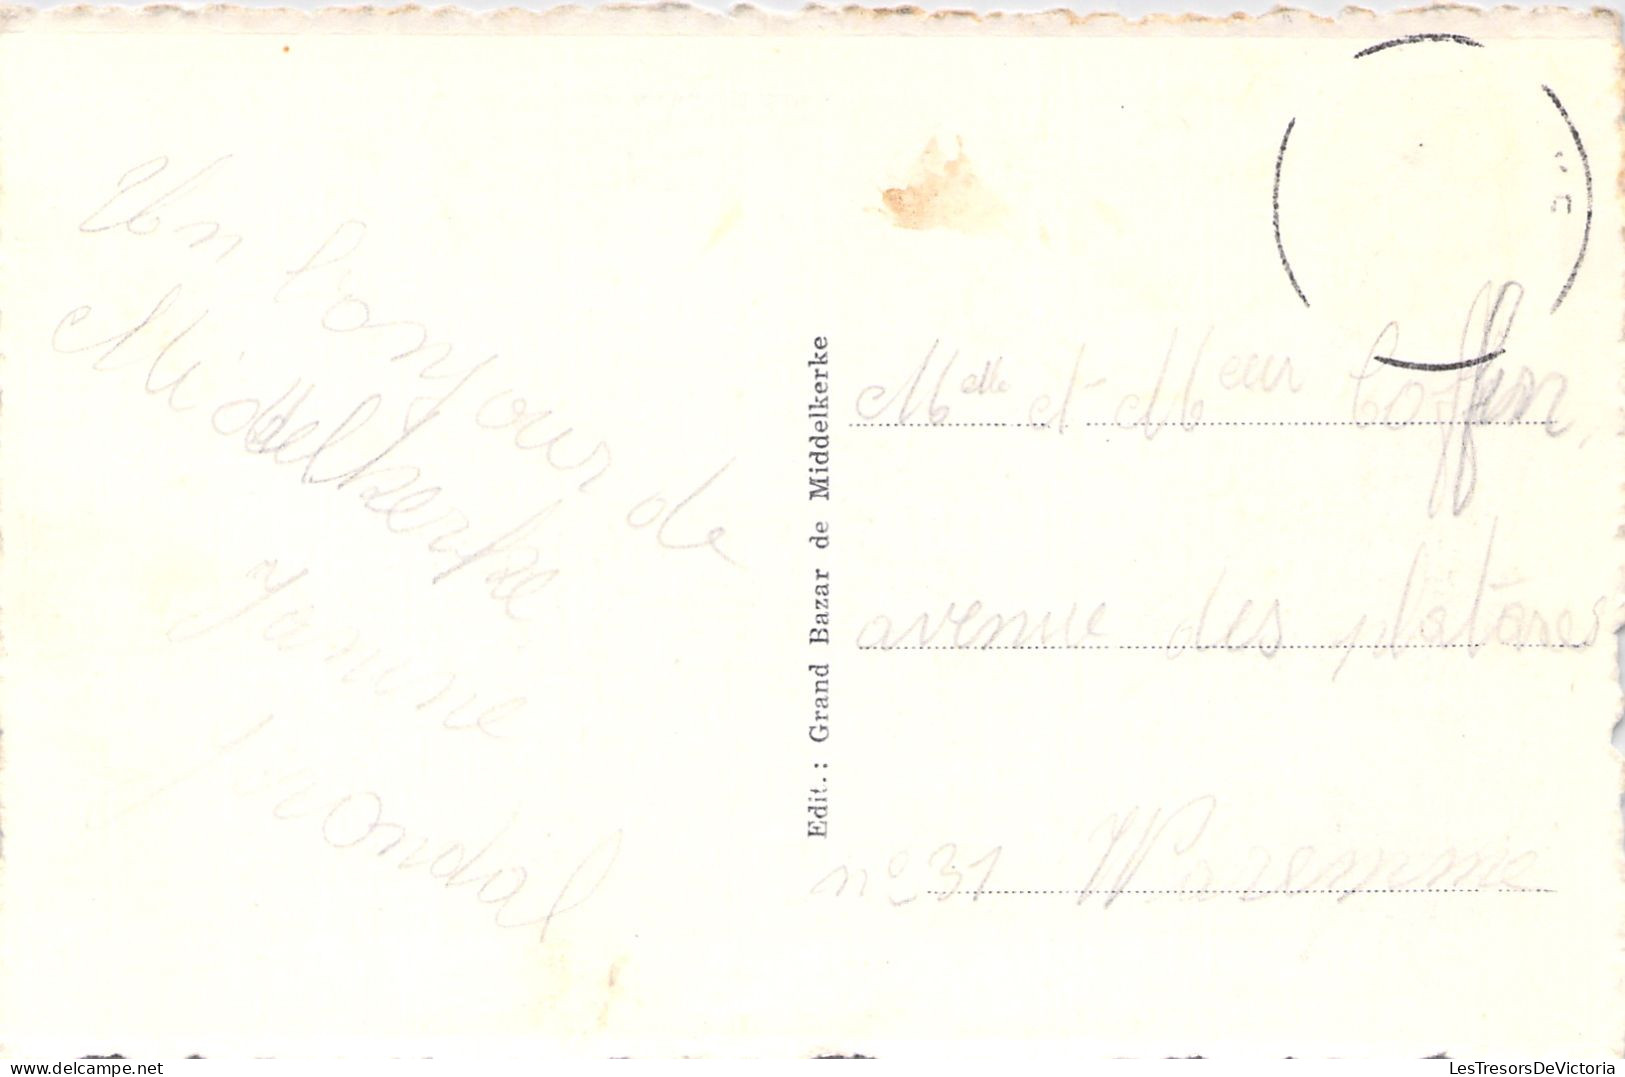 Un bonjour de
Middelkerke
Janine
Edit.: Grand Bazar de Middelkerke
Melle et Meur Coffin
avenue des platanes
n° 31 Waremme
LesTresorsDeVictoria